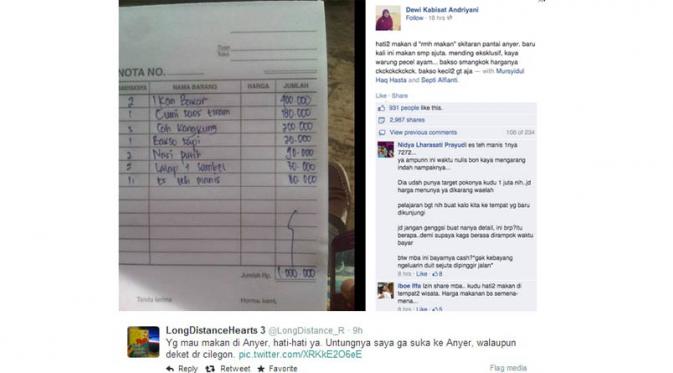 Tuan
Toko
NOTA NO.
BANYAKNYA NAMA BARANG HARGA JUMLAH
2 Ikan Bakar 400.000
1 Cumi saos tiram 180.000
3 Cah kangkung 200.000
1 Bakso sapi 20.000
2 Nasi putih 90.000
2 Lalap + sambel 30.000
11 es teh manis 80.000
Jumlah Rp. 1.000.000
Tanda terima Hormat kami,
Dewi Kabisat Andriyani
Follow · 18 hrs
hati2 makan d "rmh makan" skitaran pantai anyer. baru
kali ini makan smp sjuta. mending eksklusif, kaya
warung pecel ayam... bakso smangkok harganya
ckckckckckck. bakso kecil2 gt aja — with Mursyidul
Haq Hasta and Septi Alfianti.
Like · Share
931 people like this.
2,987 shares
View previous comments 106 of 234
Nidya Lharasati Prayudi es teh manis 1nya
7272...
ya ampurin ini waktu nulis bon kaya mengarang
indah nampaknya...
Dia udah punya target pokonya kudu 1 juta nih..jd
harga menunya ya dikarang waelah
pelajaran bgt nih buat kalo kita ke tempat yg baru
dikunjungi
jd jangan genggsi buat nanya detail, ini brp?itu
berapa..demi supaya kaga berasa dirampok waktu
bayar
btw mba ini bayarnya cash?"gak kebayang
ngeluarin duit sejuta dipinggir jalan"
8 hrs · Like · 8
iboe Iffa Izin share mba.. kudu hati2 makan di
tempat2 wisata. Harga makanan bs semena-
mena...
8 hrs · Like · 3
LongDistanceHearts 3 @LongDistance_R · 9h
Yg mau makan di Anyer, hati-hati ya. Untungnya saya ga suka ke Anyer, walaupun
deket dr cilegon. pic.twitter.com/XRKkE2O6eE
Reply Retweet Favorite Flag media